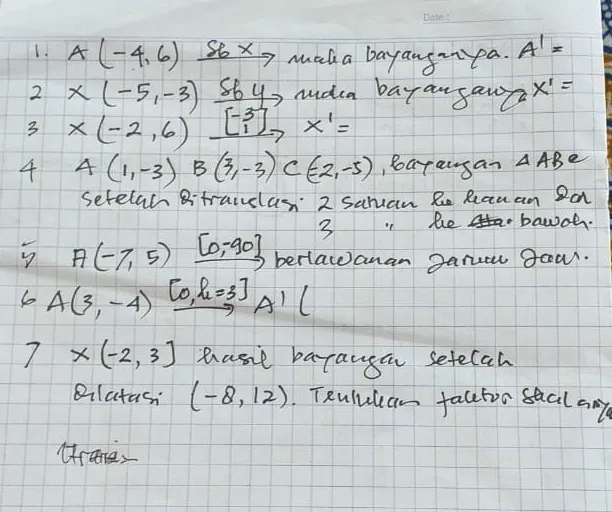 Date:
1. A (-4,6) Sb x → maka bayangannya. A' =
2 X (-5,-3) Sb y → maka bayangannya X' =
3 X (-2,6) [-3 1] → X' =
4 A (1,-3) B (3,-3) C (-2,-5), bayangan Δ ABC
setelah ditranslasi 2 satuan ke kanan dan
3 " ke bawah.
5 A (-7,5) [0,-90] → berlawanan jarum jam.
6 A(3,-4) [0,k=3] → A' (
7 X (-2,3] hasil bayangan setelah
dilatasi (-8,12). Tentukan faktor skalanya